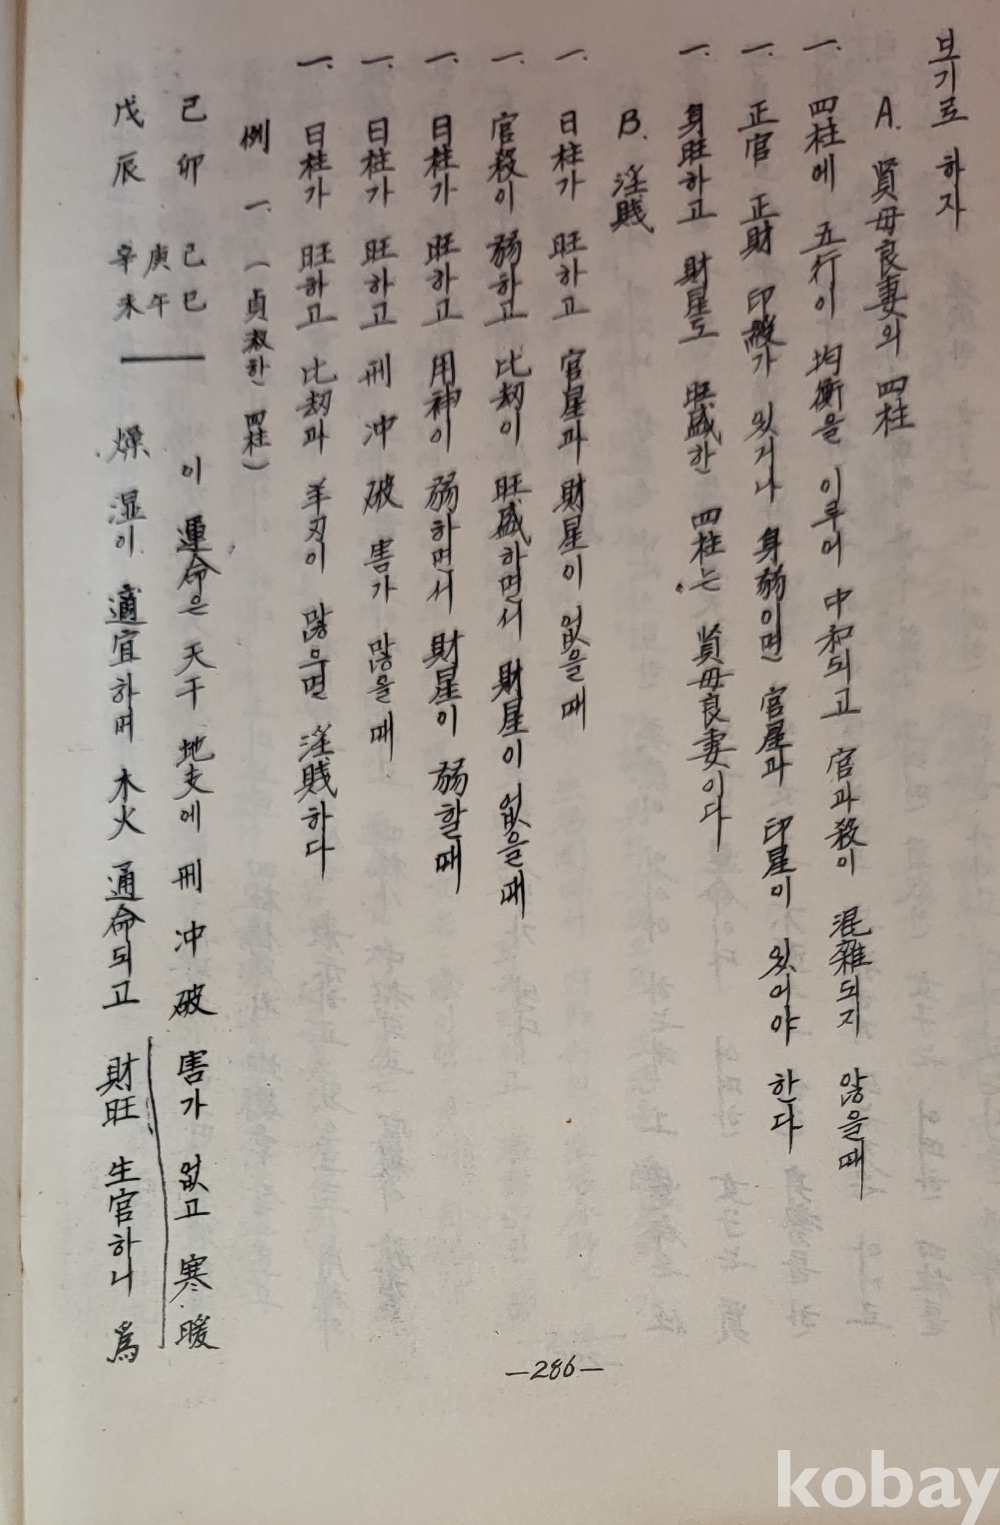 보기로 하자
A. 賢母良妻의 四柱
一. 四柱에 五行이 均衡을 이루어 中和되고 官과 殺이 混雜되지 않을때
一. 正官 正財 印綬가 있거나 身弱이면 官星과 印星이 있어야 한다
一. 身旺하고 財星도 旺盛한 四柱는 賢母良妻이다
B. 淫賤
一. 日柱가 旺하고 官星과 財星이 없을때
一. 官殺이 弱하고 比劫이 旺盛하면서 財星이 없을때
一. 日柱가 旺하고 用神이 弱하면서 財星이 弱할때
一. 日柱가 旺하고 刑 冲 破 害가 많을때
一. 日柱가 旺하고 比劫과 羊刃이 많으면 淫賤하다
例 一. (貞淑한 四柱)
己卯 己巳 이 運命은 天干 地支에 刑 冲 破 害가 없고 寒暖
庚午
戊辰 辛未 燥湿이 適宜하며 木火 通命되고 財旺 生官하니 爲
—286—
kobay